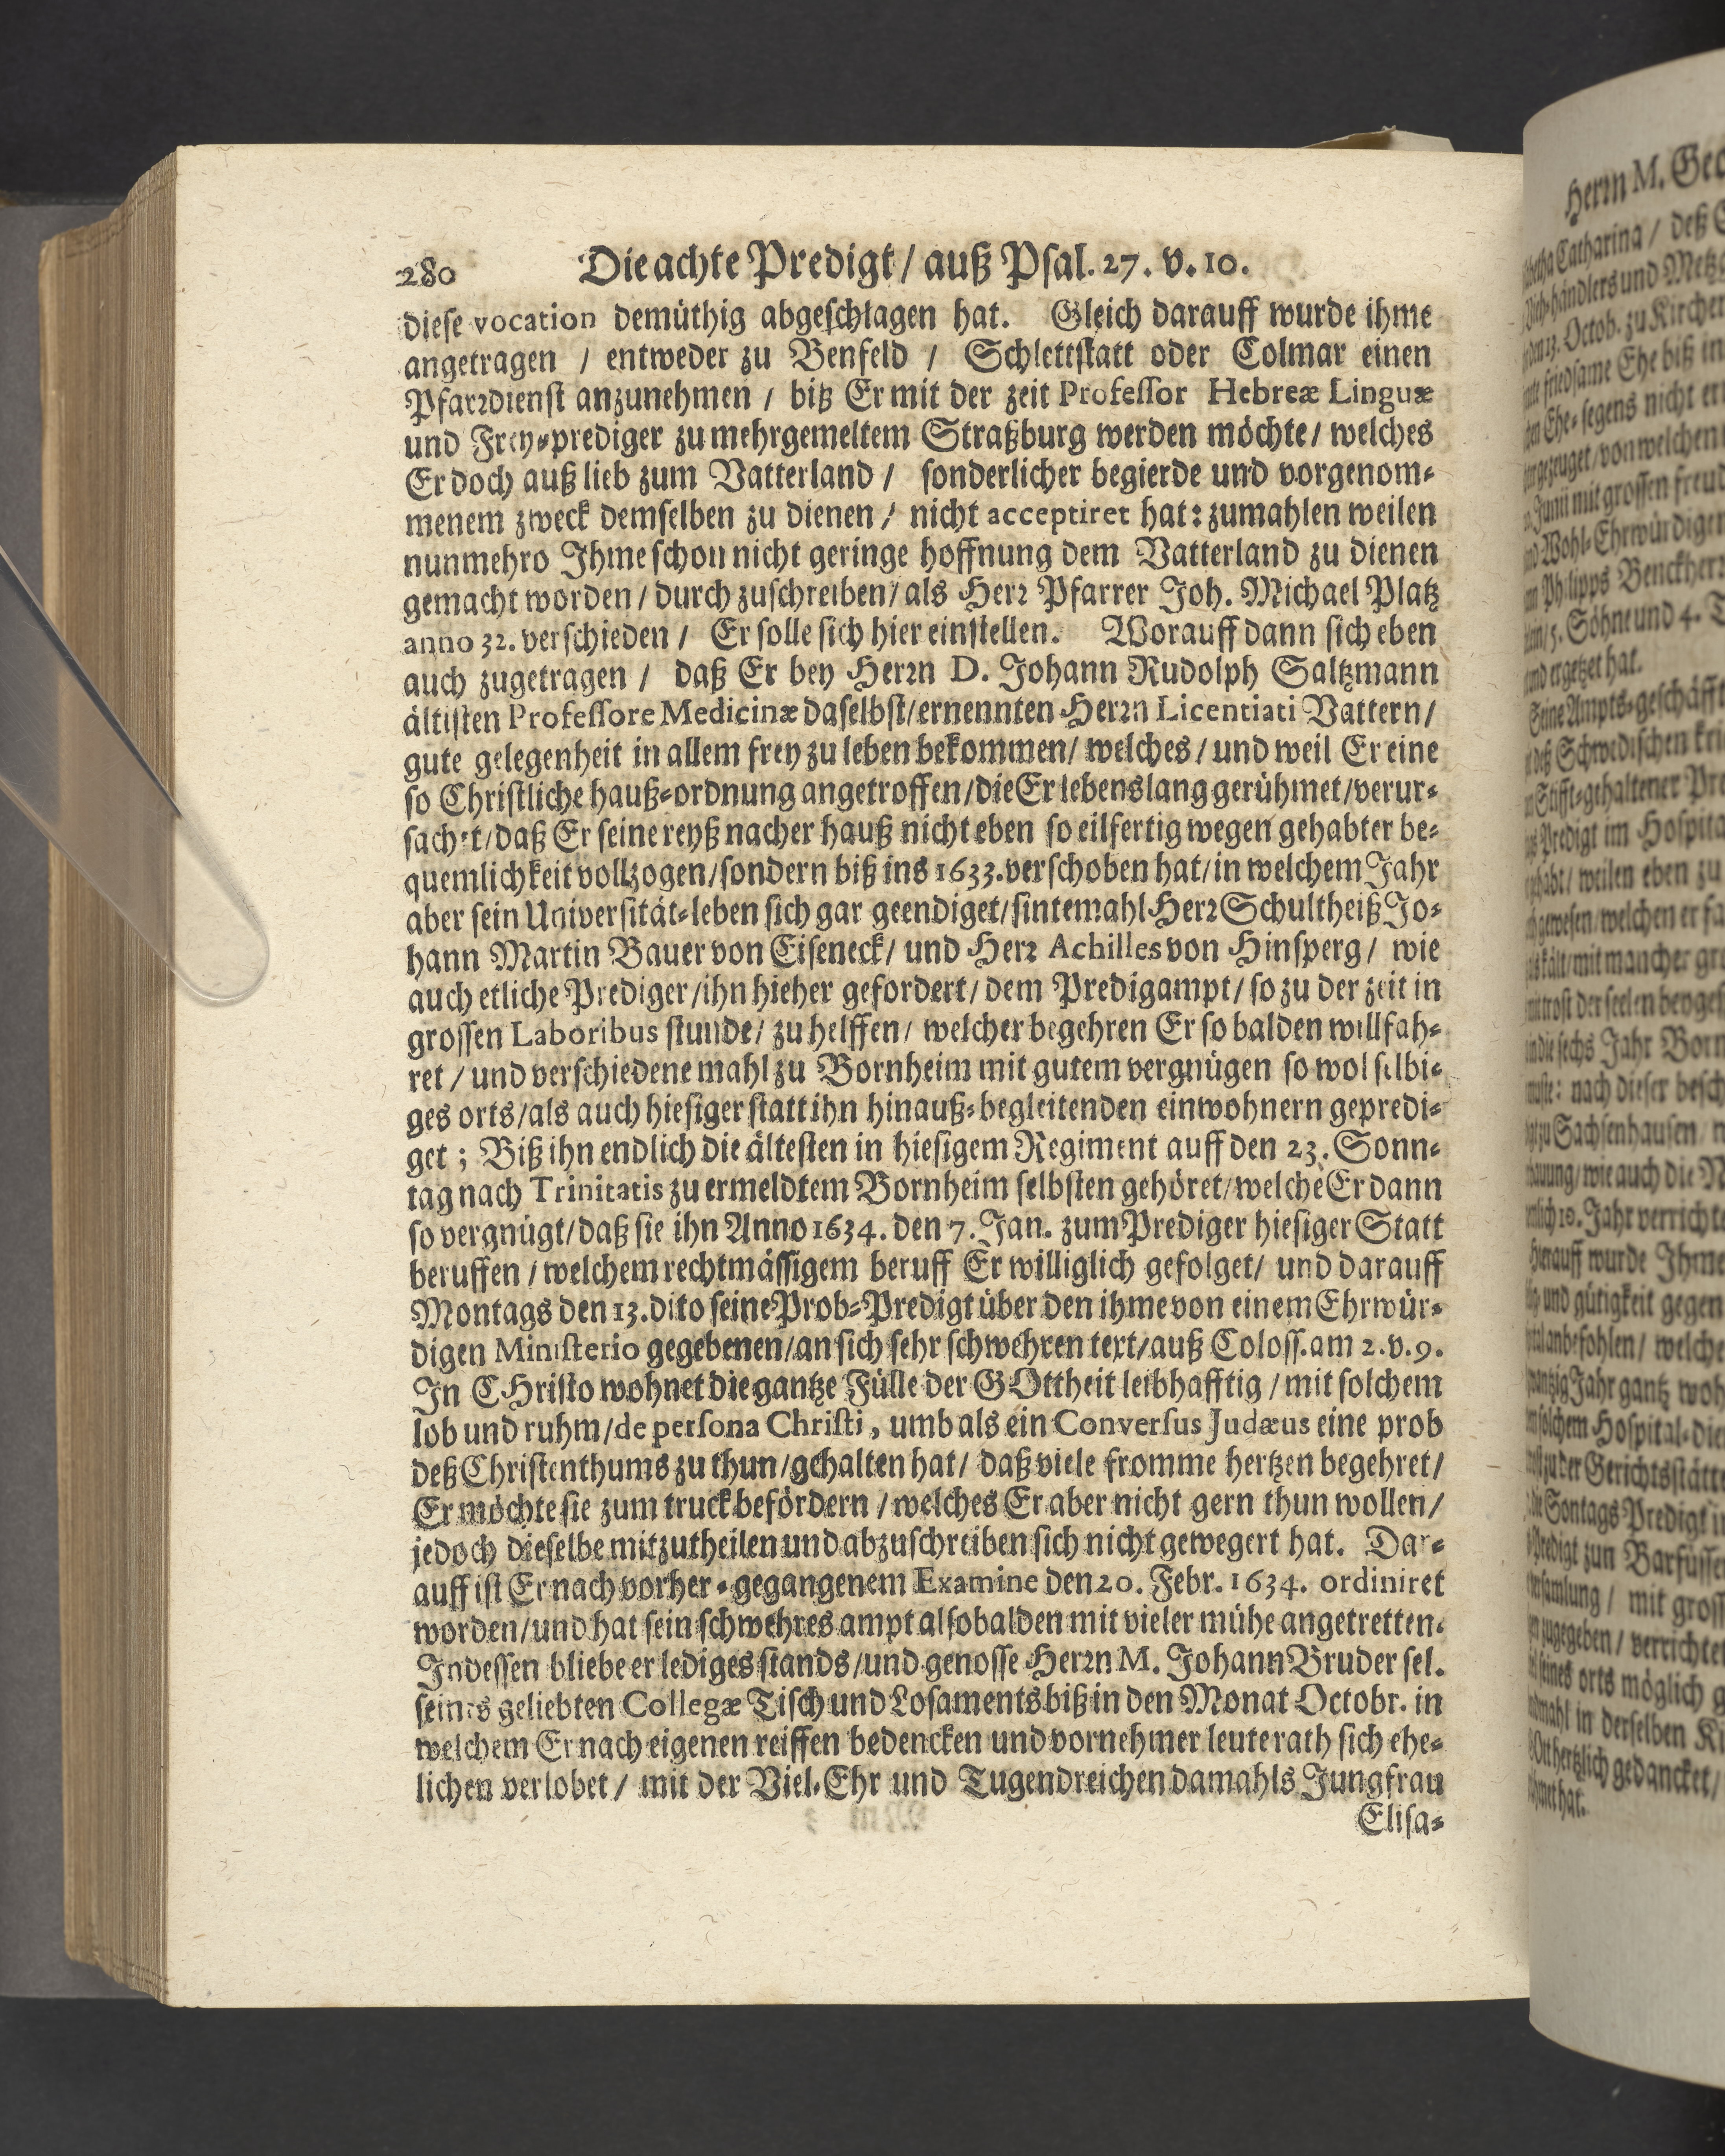 280 Die achte Predigt / auß Psal. 27. v. 10.
diese vocation demüthig abgeschlagen hat. Gleich darauff wurde ihme
angetragen / entweder zu Benfeld / Schlettstatt oder Colmar einen
Pfarꝛdienst anzunehmen / biß Er mit der zeit Professor Hebreæ Linguæ
und Frey-prediger zu mehrgemeltem Straßburg werden möchte / welches
Er doch auß lieb zum Vatterland / sonderlicher begierde und vorgenom-
menem zweck demselben zu dienen / nicht acceptiret hat: zumahlen weilen
nunmehro Ihme schon nicht geringe hoffnung dem Vatterland zu dienen
gemacht worden / durch zuschreiben / als Herꝛ Pfarrer Joh. Michael Platz
anno 32. verschieden / Er solle sich hier einstellen. Worauff dann sich eben
auch zugetragen / daß Er bey Herꝛn D. Johann Rudolph Saltzmann
ältisten Professore Medicinæ daselbst / ernennten Herꝛn Licentiati Vattern /
gute gelegenheit in allem frey zu leben bekommen / welches / und weil Er eine
so Christliche hauß-ordnung angetroffen / die Er lebenslang gerühmet / verur-
sachet / daß Er seine reyß nacher hauß nicht eben so eilfertig wegen gehabter be-
quemlichkeit vollzogen / sondern biß ins 1633. verschoben hat / in welchem Jahr
aber sein Universität-leben sich gar geendiget / sintemahl Herꝛ Schultheiß Jo-
hann Martin Bauer von Eiseneck / und Herꝛ Achilles von Hinsperg / wie
auch etliche Prediger / ihn hieher gefordert / dem Predigampt / so zu der zeit in
grossen Laboribus stunde / zu helffen / welcher begehren Er so balden willfah-
ret / und verschiedene mahl zu Bornheim mit gutem vergnügen so wol selbi-
ges orts / als auch hiesiger statt ihn hinauß-begleitenden einwohnern gepredi-
get ; Biß ihn endlich die ältesten in hiesigem Regiment auff den 23. Sonn-
tag nach Trinitatis zu ermeldtem Bornheim selbsten gehöret / welche Er dann
so vergnügt / daß sie ihn Anno 1634. den 7. Jan. zum Prediger hiesiger Statt
beruffen / welchem rechtmässigem beruff Er williglich gefolget / und darauff
Montags den 13. dito seine Prob-Predigt über den ihme von einem Ehrwür-
digen Ministerio gegebenen / an sich sehr schwehren text / auß Coloss. am 2. v. 9.
In CHristo wohnet die gantze Fülle der GOttheit leibhafftig / mit solchem
lob und ruhm / de persona Christi, umb als ein Conversus Judæus eine prob
deß Christenthums zu thun / gehalten hat / daß viele fromme hertzen begehret /
Er möchte sie zum truck befördern / welches Er aber nicht gern thun wollen /
jedoch dieselbe mitzutheilen und abzuschreiben sich nicht gewegert hat. Dar-
auff ist Er nach vorher-gegangenem Examine den 20. Febr. 1634. ordiniret
worden / und hat sein schwehres ampt alsobalden mit vieler mühe angetretten.
Indessen bliebe er lediges stands / und genosse Herꝛn M. Johann Bruder sel.
seines geliebten Collegæ Tisch und Losaments biß in den Monat Octobr. in
welchem Er nach eigenen reiffen bedencken und vornehmer leute rath sich ehe-
lichen verlobet / mit der Viel-Ehr und Tugendreichen damahls Jungfrau
Elisa-
Herꝛn M. Geo
Catharina / deß
händlers und Metzg
13. Octob. zu Kirchen
friedsame Ehe biß in
Ehe-segens nicht er
von welchen
Junii mit grossen freud
Wohl-Ehrwürdigen
Philipps Benckher
5. Söhne und 4. T
und ergetzet hat.
Seine Ampts-geschäfft
deß Schwedischen kri
Stifft-gehaltener Pre
Predigt im Hospita
weilen eben zu
gewesen / welchen er fa
kält / mit mancher gro
trost der seelen beygef
in die sechs Jahr Born
nach dieser besch
zu Sachsenhausen
wie auch die
10. Jahr verrichte
Hierauff wurde Ihme
und gütigkeit gegen
anbefohlen / welche
Jahr gantz woh
solchem Hospital-die
zu der Gerichtsstätte
Sontags-Predigt
Predigt zun Barfüsse
mit gross
verrichtet
seines orts möglich
mahl in derselben Ki
hertzlich gedancket /
hat.